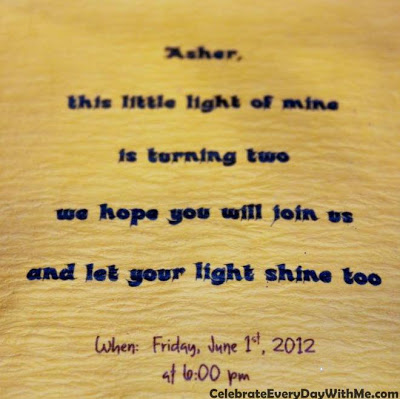 Asher,
this little light of mine
is turning two
we hope you will join us
and let your light shine too
When: Friday, June 1st, 2012
at 6:00 pm
CelebrateEveryDayWithMe.com